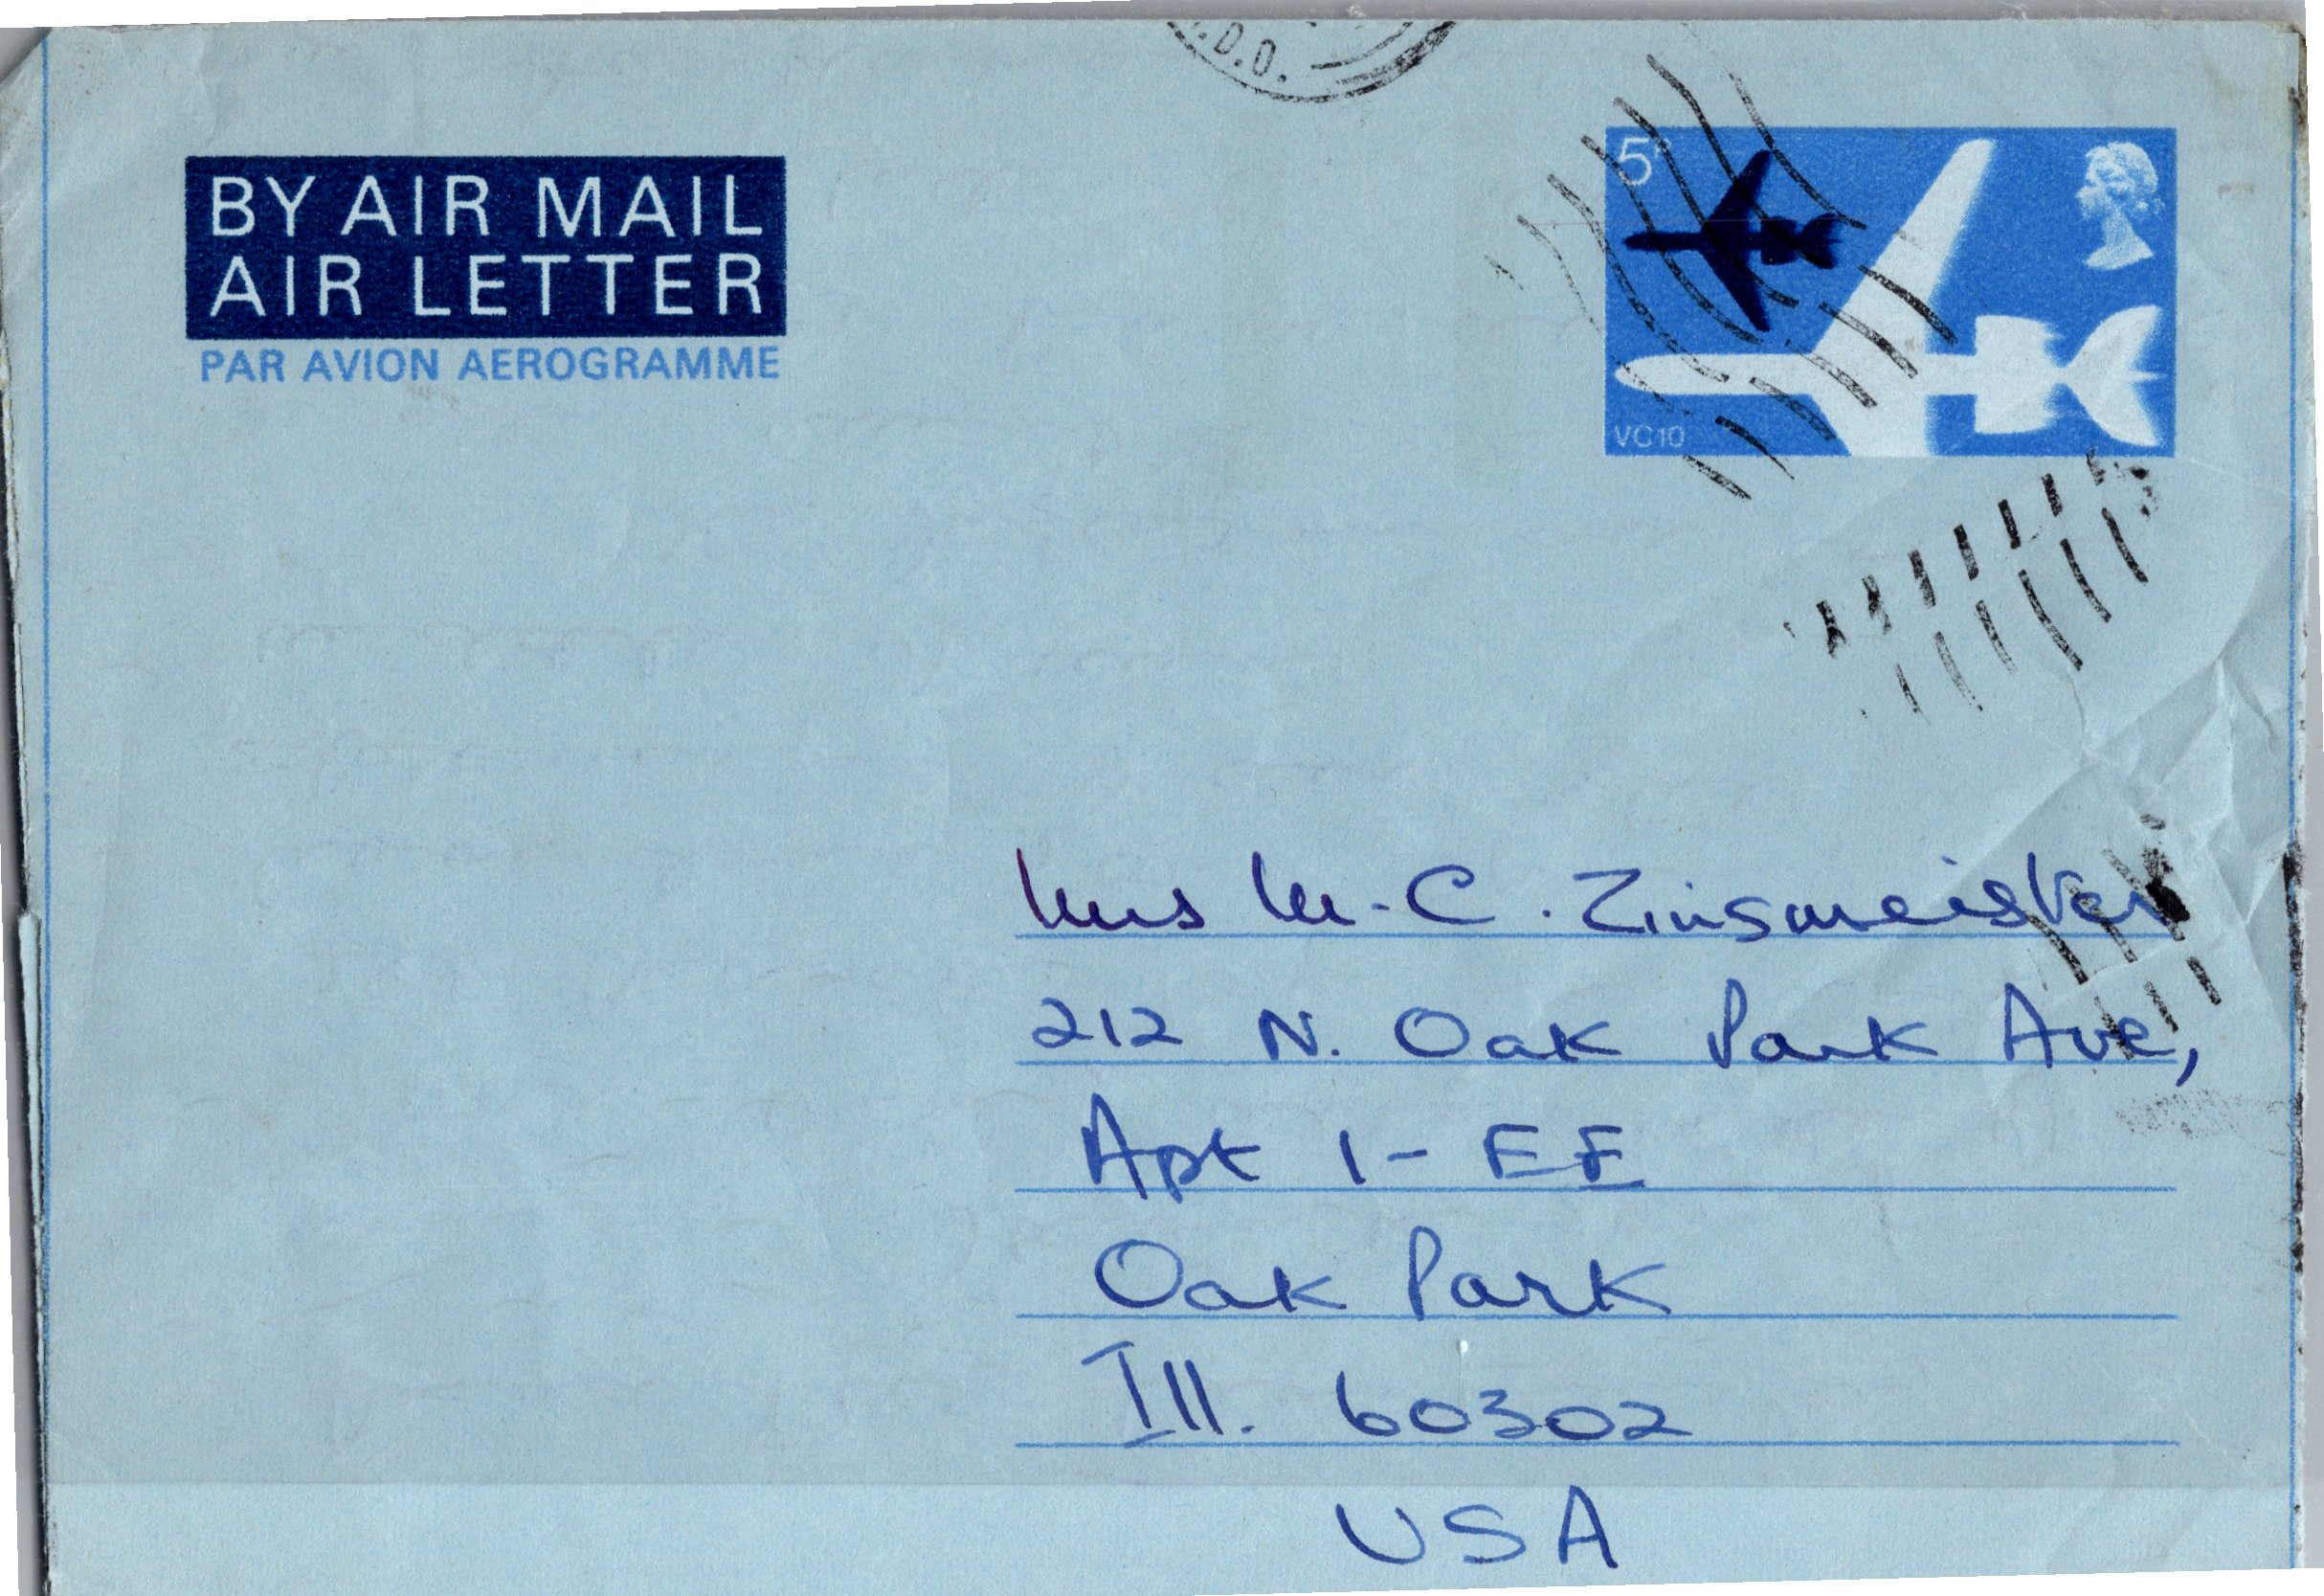 .D.O.
BY AIR MAIL
AIR LETTER
PAR AVION AEROGRAMME
5P
VC10
Mrs M.C. Zinsmeister
212 N. Oak Park Ave,
Apt 1-EE
Oak Park
Ill. 60302
USA